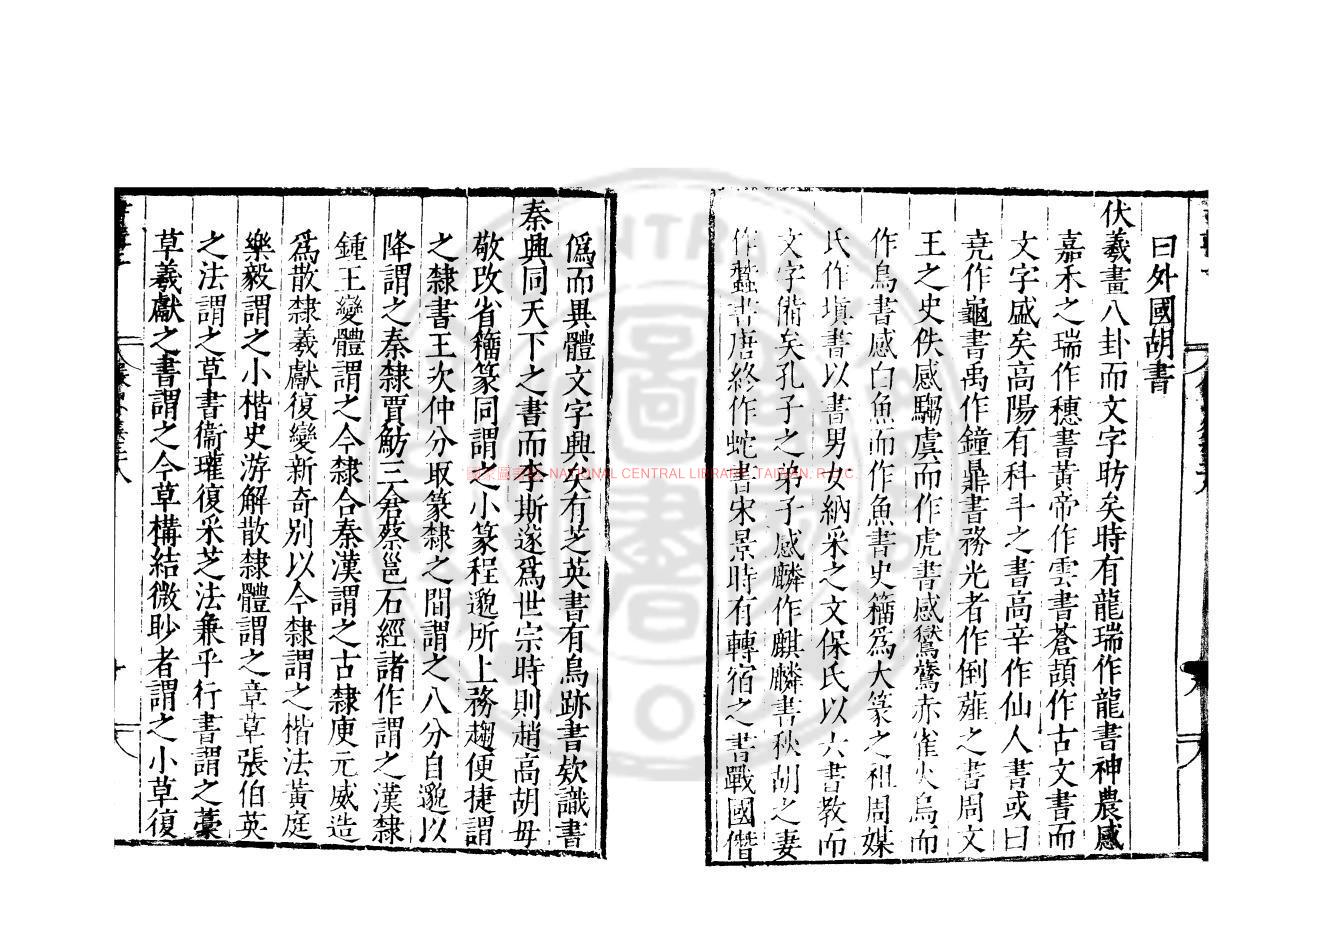 曰外國胡書
伏羲畫八卦而文字昉矣時有龍瑞作龍書神農感
嘉禾之瑞作穗書黃帝作雲書蒼頡作古文書而
文字盛矣高陽有科斗之書高辛作仙人書或曰
堯作龜書禹作鐘鼎書務光者作倒薤之書周文
王之史佚感騶虞而作虎書感鸑鷟赤雀火烏而
作鳥書感白魚而作魚書史籀爲大篆之祖周媒
氏作塡書以書男女納采之文保氏以六書教而
文字備矣孔子之弟子感麟作麒麟書秋胡之妻
作蠶書唐終作蛇書宋景時有轉宿之書戰國僭
僞而異體文字興矣有芝英書有鳥跡書欸識書
秦興同天下之書而李斯遂爲世宗時則趙高胡毋
敬改省籀篆同謂之小篆程邈所上務趨便捷謂
之隸書王次仲分取篆隸之間謂之八分自邈以
降謂之秦隸賈魴三倉蔡邕石經諸作謂之漢隸
鍾王變體謂之今隸合秦漢謂之古隸庾元威造
爲散隸羲獻復變新奇別以今隸謂之楷法黃庭
樂毅謂之小楷史游解散隸體謂之章草張伯英
之法謂之草書衞瓘復采芝法兼乎行書謂之藁
草羲獻之書謂之今草構結微眇者謂之小草復
國家圖書館 NATIONAL CENTRAL LIBRARY, TAIWAN, R.O.C.